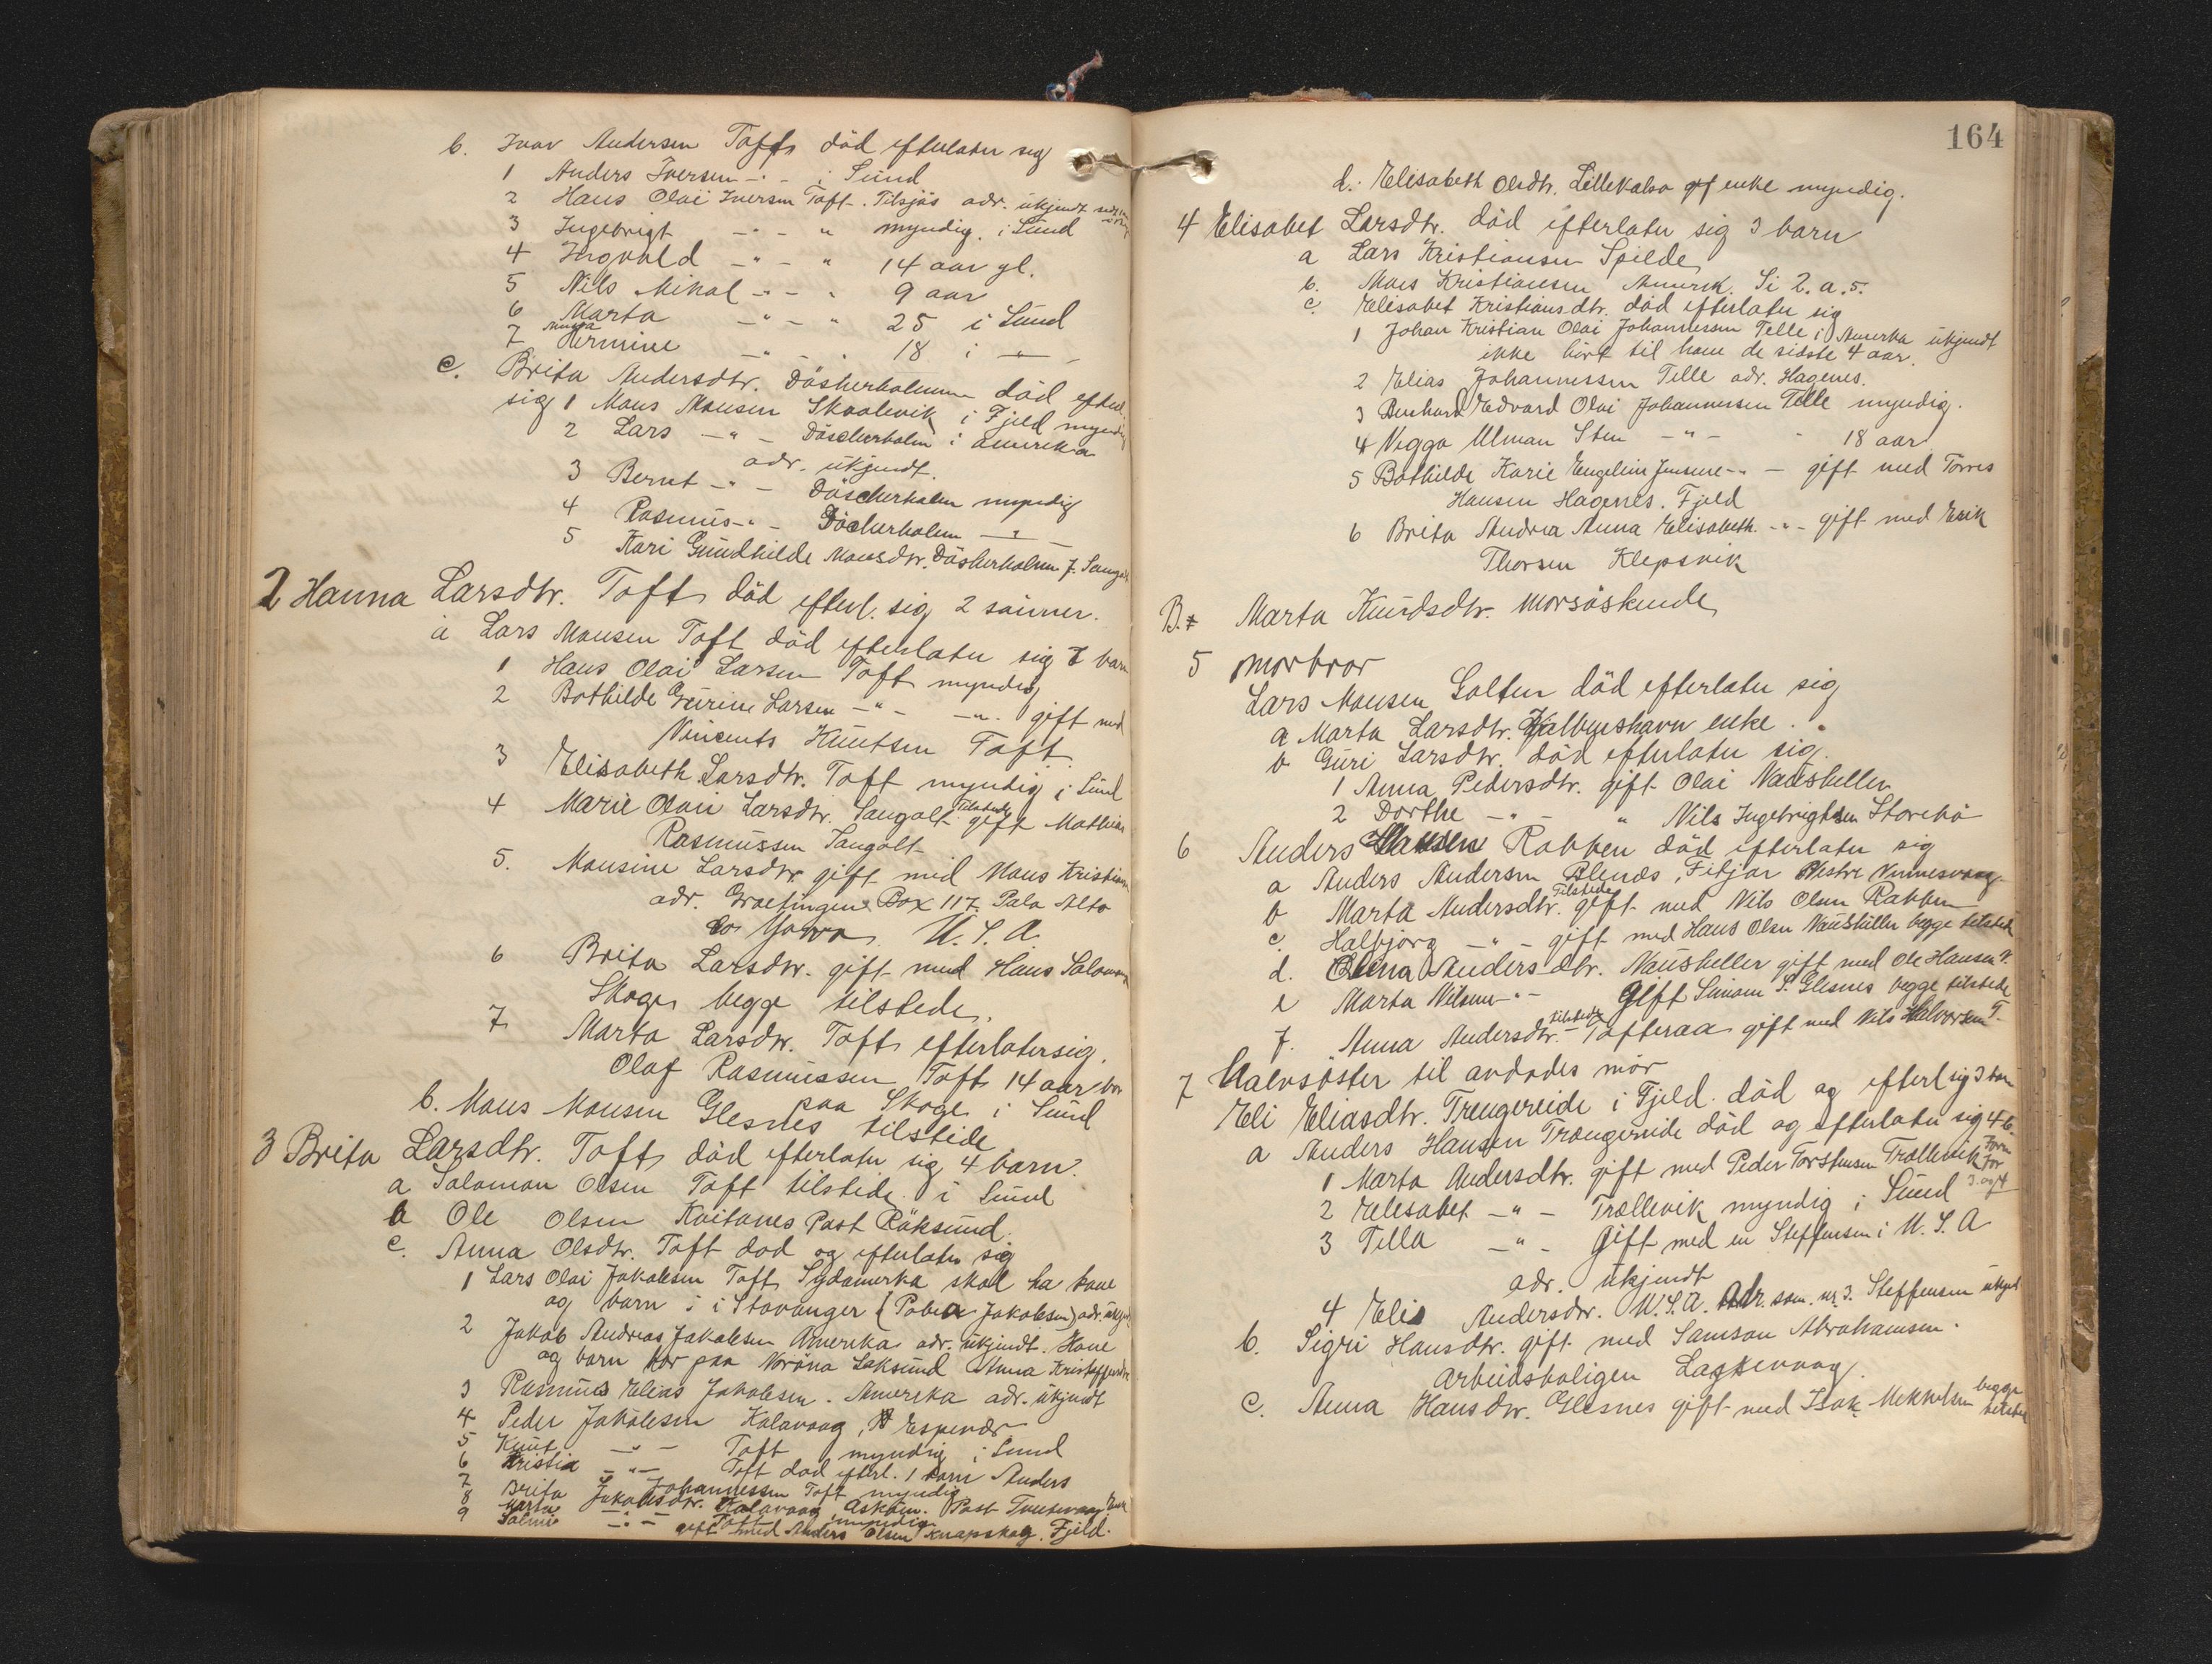 b. Ivar Andersen Toft död efterlater sig
1 Anders Iversen -"- i Sund
2 Hans Olai Iversen Toft. Tilsjös adr. ukjendt
3 Ingebrigt -"- " myndig. i Sund
4 Ingvald -"- " 14 aar gl.
5 Nils Mikal -"- " 9 aar
6 Marta -"- " 25 i Sund
7 Hermine -"- " 18 i -"-
c. Brita Andersdtr. Döskerholmen död efterl.
sig 1 Mons Monsen Skaalevik i Fjeld myndig
2 Lars -"- Döskerholm i amerika
adr. ukjendt.
3 Bernt -"- Döskerholm myndig
4 Rasmus -"- Döskerholm -"-
5 Kari Gundhilde Monsdtr. Döskerholmen
2 Hanna Larsdtr. Toft död efterl. sig 2 sönner.
a Lars Monsen Toft död efterlater sig 7 barn
1 Hans Olai Larsen Toft myndig
2 Bothilde Gurine Larsen -"- -"- gift med
Vincents Knutsen Toft
3 Elisabeth Larsdtr. Toft myndig i Sund
4 Marie Olai Larsdtr. Tangolt Tilstede gift Mathias
Rasmussen Tangolt
5. Monsine Larsdtr gift med Mons Kristian
adr. Box 117. Palo Alto
U. S. A.
6 Brita Larsdtr. gift med Hans Salomon
Skoge begge tilstede.
7 Marta Larsdtr. Toft efterlater sig.
Olaf Rasmussen Toft 14 aar bor
paa Skoge i Sund
b. Mons Monsen Glesnes tilstede
3 Brita Larsdtr. Toft död efterlater sig 4 barn.
a Salomon Olsen Toft tilstede i Sund
b Ole Olsen Kvitanes Post Röksund.
c. Anna Olsdtr. Toft död og efterlater sig
1 Lars Olai Jakobsen Toft Sydamerka skal ha kone
og barn i Stavanger ( Jakobsen) adr. ukjent
2 Jakob Andreas Jakobsen Amerika adr. ukjendt. Kone
og barn bor paa Laksund Anna
3 Rasmus Elias Jakobsen. Amerika adr. ukjendt
4 Peder Jakobsen Kalavaag, Espevær
5 Knut -"- Toft myndig i Sund
6 Kristia -"- Toft död efterl. 1 barn Anders
Johannessen Toft myndig
7 Brita Jakobsdtr. Kalavaag, Asköen. Post
8 Marta -"- Toft myndig
9 Salmi gift med Anders Olsen Knapskog. Fjeld.
164
d. Elisabeth Olsdtr. Lillekalsø enke myndig.
4 Elisabet Larsdtr. död efterlater sig 3 barn
a Lars Kristiansen Spilde
b. Mons Kristiansen Amerik. Si 2. a. 5.
c. Elisabet Kristiansdtr. död efterlater sig
1 Johan Kristian Olai Johannessen Telle i Amerka ukjendt
ikke hört til ham de sidste 4 aar.
2 Elias Johannessen Telle adr. Hagenes.
3 Bernhard Edvard Olai Johannessen Telle myndig.
4 Viggo Ulman Sten -"- 18 aar
5 Bothilde Karie Engeline Jensine -"- gift med Torres
Hansen Hagenes. Fjeld
6 Brita Andrea Anna Elisabeth -"- gift med Erik
Thorsen Klepsvik
B. Marta Knudsdtr. Morsöskende
5 Morbror
Lars Monsen Golten död efterlater sig
a Marta Larsdtr. enke.
b Guri Larsdtr. död efterlater sig.
1 Anna Pedersdtr. gift Olai Naushellen
2 Dorthe -"- " Nils Ingebrigtsen Storebö
6 Anders Hansen Rabben död efterlater sig
a Anders Andersen Alenes, Fitjar Vestre Vinnesvaag
b Marta Andersdtr. Tilstede gift med Nils Olsen Rabben
c. Halbjörg -"- gift med Hans Olsen Naushellen begge tilstede
d. Elina Andersdtr. Naushellen gift med Ole Hansen N.
e Marta Nilsine -"- gift Simon S. Glesnes begge tilstede
f. Anna Andersdtr. tilstede Tofteraa gift med Nils Halvorsen T.
7 Halvsöster til avdödes mor
Eli Eliasdtr. Trengereide i Fjeld. död og efterl sig 3 barn
a Anders Hansen Trængereide död og efterlater sig 4 b.
1 Marta Andersdtr. gift med Peder Torstensen Trællevik
2 Elesabet -"- Trællevik myndig i Sund
3 Tilla -"- gift med en Steffensen i U. S. A
adr. ukjendt
4 Elis Andersdtr. U. S. A. Adr. som nr. 3. Steffensen ukjent
b. Sigri Hansdtr. gift med Samson Abrahamsen.
arbeidsboligen Laksevaag
c. Anna Hansdtr. Glesnes gift med Isak begge tilstede